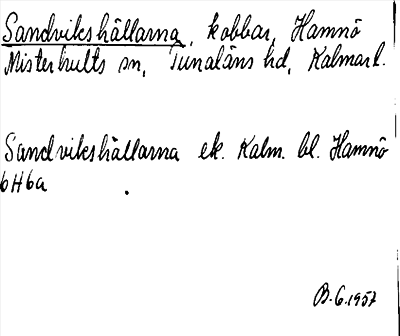 Sandvikshällarna, kobbar, Hamnö
Misterhults sn, Tunaläns hd, Kalmar l.
Sandvikshällarna ek. Kalm. bl. Hamnö
6H6a
B.G.1957